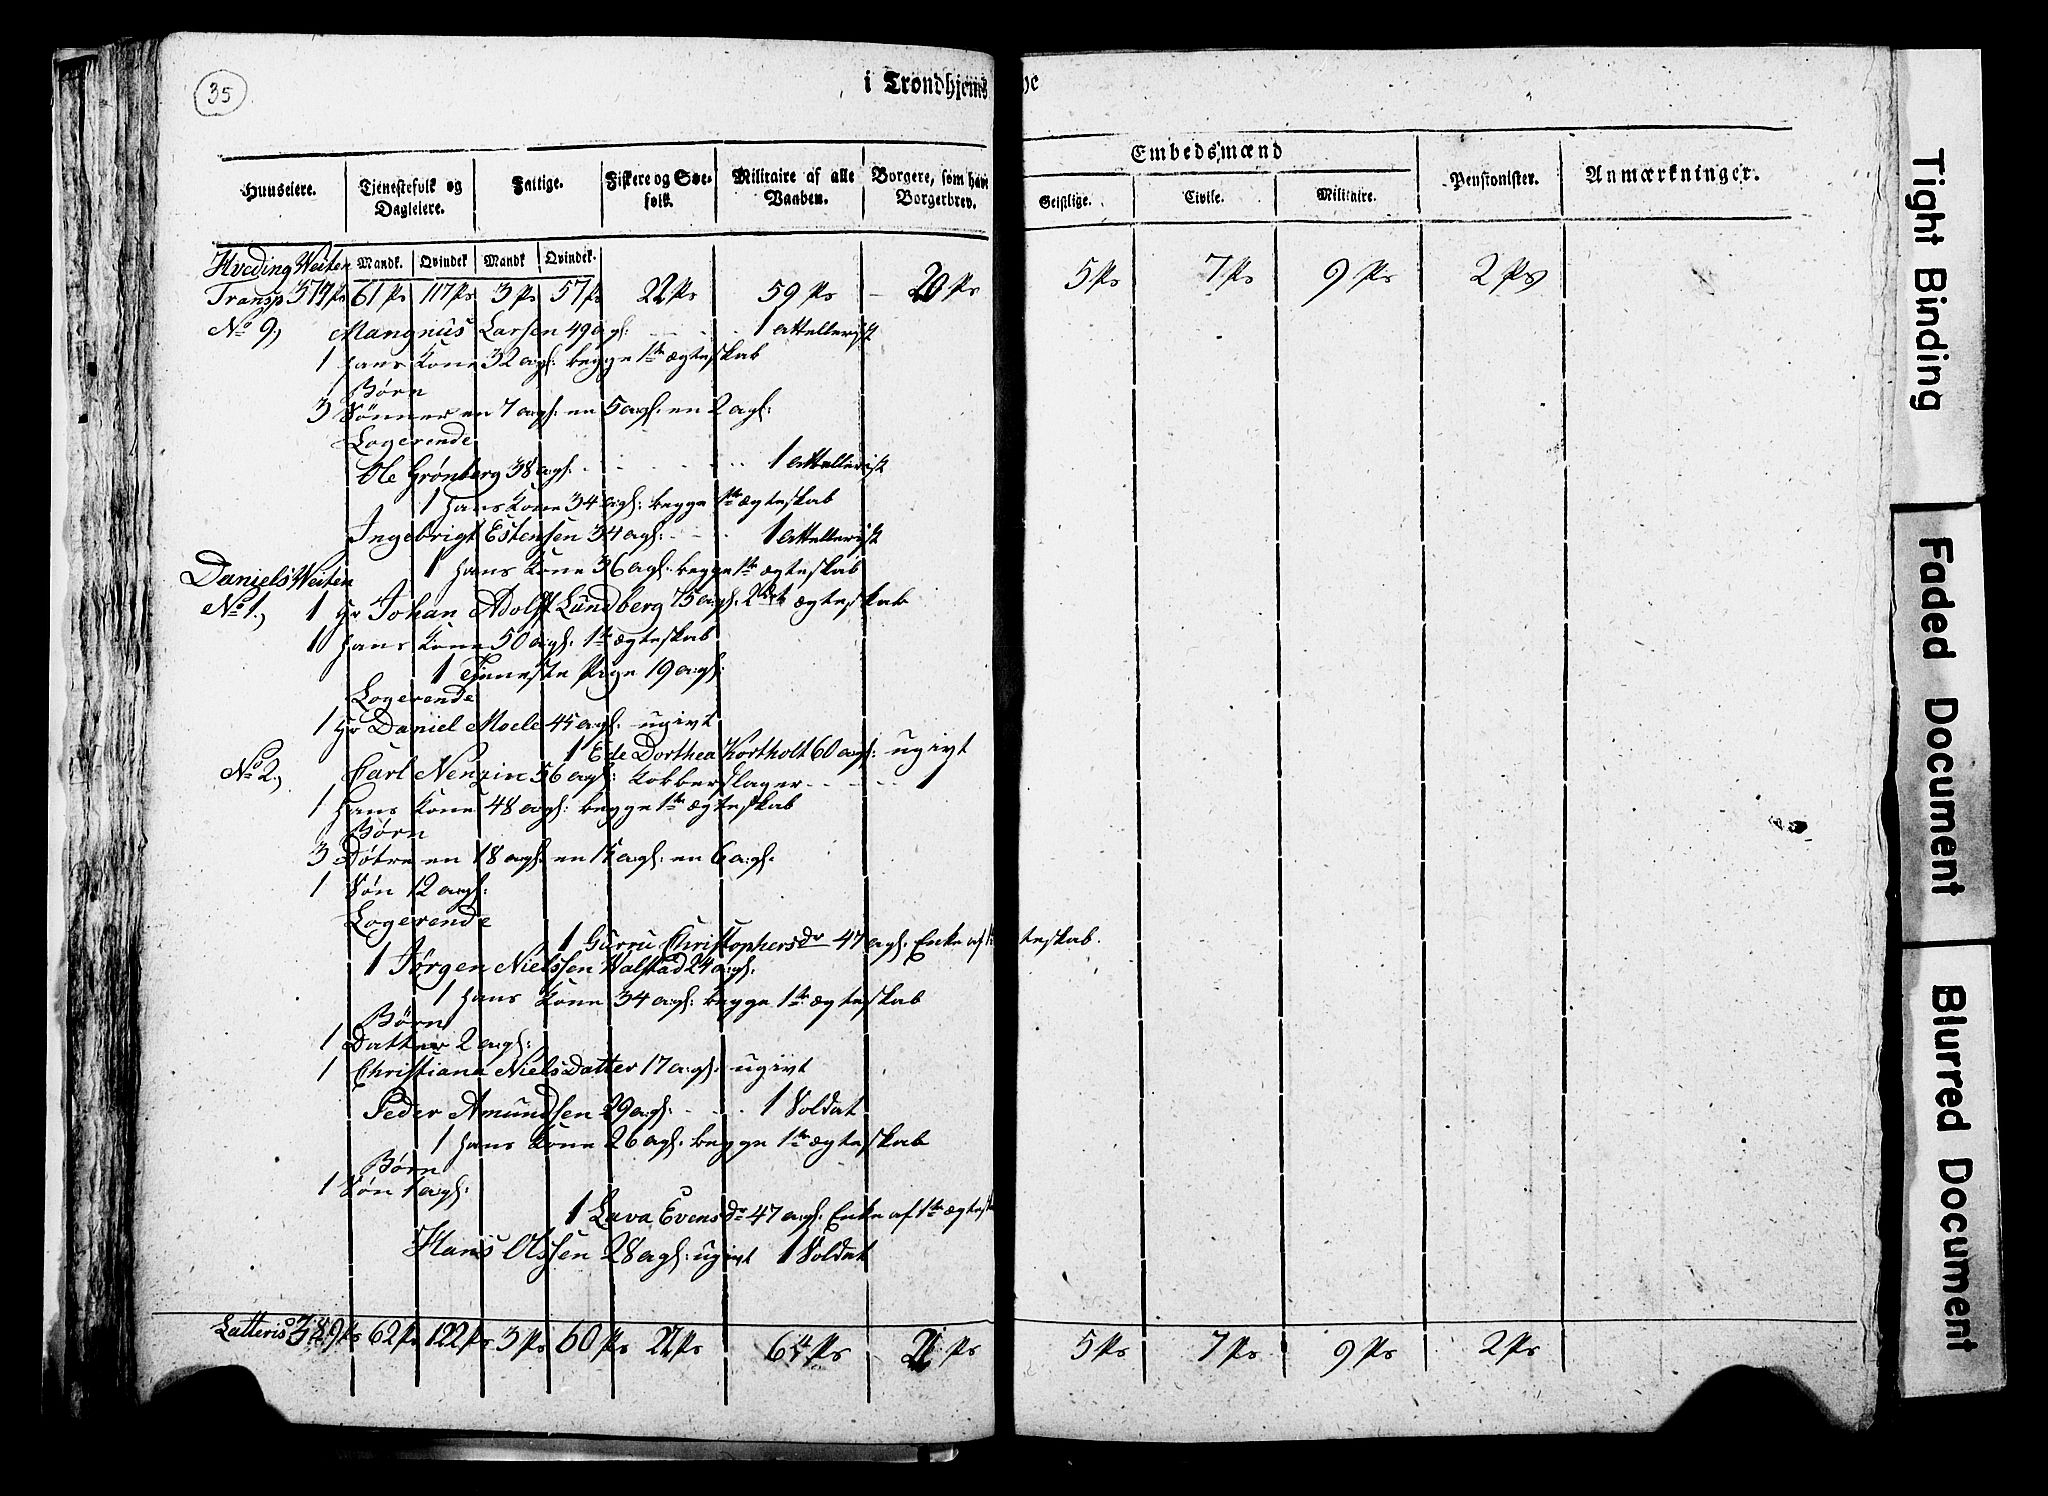 35
i Trondhjems
Huuseiere.
Tjenestefolk og Dagleiere.
Fattige.
Fiskere og Søefolk.
Militaire af alle Vaaben.
Borgere, som have Borgerbrev.
Embedsmænd
Geistlige.
Civile.
Militaire.
Pensionister.
Anmærkninger.
Hveding Weiten Mandk. Qvindek Mandk Qvindek.
Transp 379 Ps 61 Ps 117 Ps 3 Ps 57 Ps 22 Ps 59 Ps 20 Ps 5 Ps 7 Ps 9 Ps 2 Ps
No 9, Mangnus Larsen 49 agl: 1 Attellerist
1 hans Kone 32 agl: begge 1te ægteskab
Børn
3 Sønner en 7 agl: en 5 agl: en 2 agl:
Logerende
Ole Grønberg 38 agl: 1 Attellerist
1 hans Kone 34 agl: begge 1te ægteskab
Ingebrigt Estensen 34 agl: 1 Attellerist
1 hans Kone 36 agl: begge 1te ægteskab
Daniels Weiten
No 1, 1 Hr Johan Adolff Lundberg 75 agl: 2det ægteskab
1 hans Kone 50 agl: 1te ægteskab
1 Tjeneste Pige 19 agl:
Logerende
1 Hr Daniel Moele 45 agl: ugivt
1 Ede Dorthea Kortholt 60 agl: ugivt
No 2, Carl Nenzin 56 agl: Kobberslager 1
1 hans Kone 48 agl: begge 1te ægteskab
Børn
3 Døtre en 18 agl: en 15 agl: en 6 agl:
1 Søn 12 agl:
Logerende
1 Gurru Christophersdr 47 agl: Enke af 1 teskab.
1 Jørgen Nielssen Valstad 24 agl:
1 hans Kone 34 agl: begge 1te ægteskab
Børn
1 Datter 2 agl:
1 Christiana Niels Datter 17 agl: ugivt
Peder Amundsen 29 agl: 1 Soldat
1 hans Kone 26 agl: begge 1te ægteskab
Børn
1 Søn 1 agl:
1 Lava Evensdr 47 agl: Enke af 1te ægtesk
Hans Olssen 28 agl: ugivt 1 Soldat
Latteris 389 Ps 62 Ps 122 Ps 3 Ps 60 Ps 22 Ps 64 Ps 21 Ps 5 Ps 7 Ps 9 Ps 2 Ps
Tight Binding
Faded Document
Blurred Document